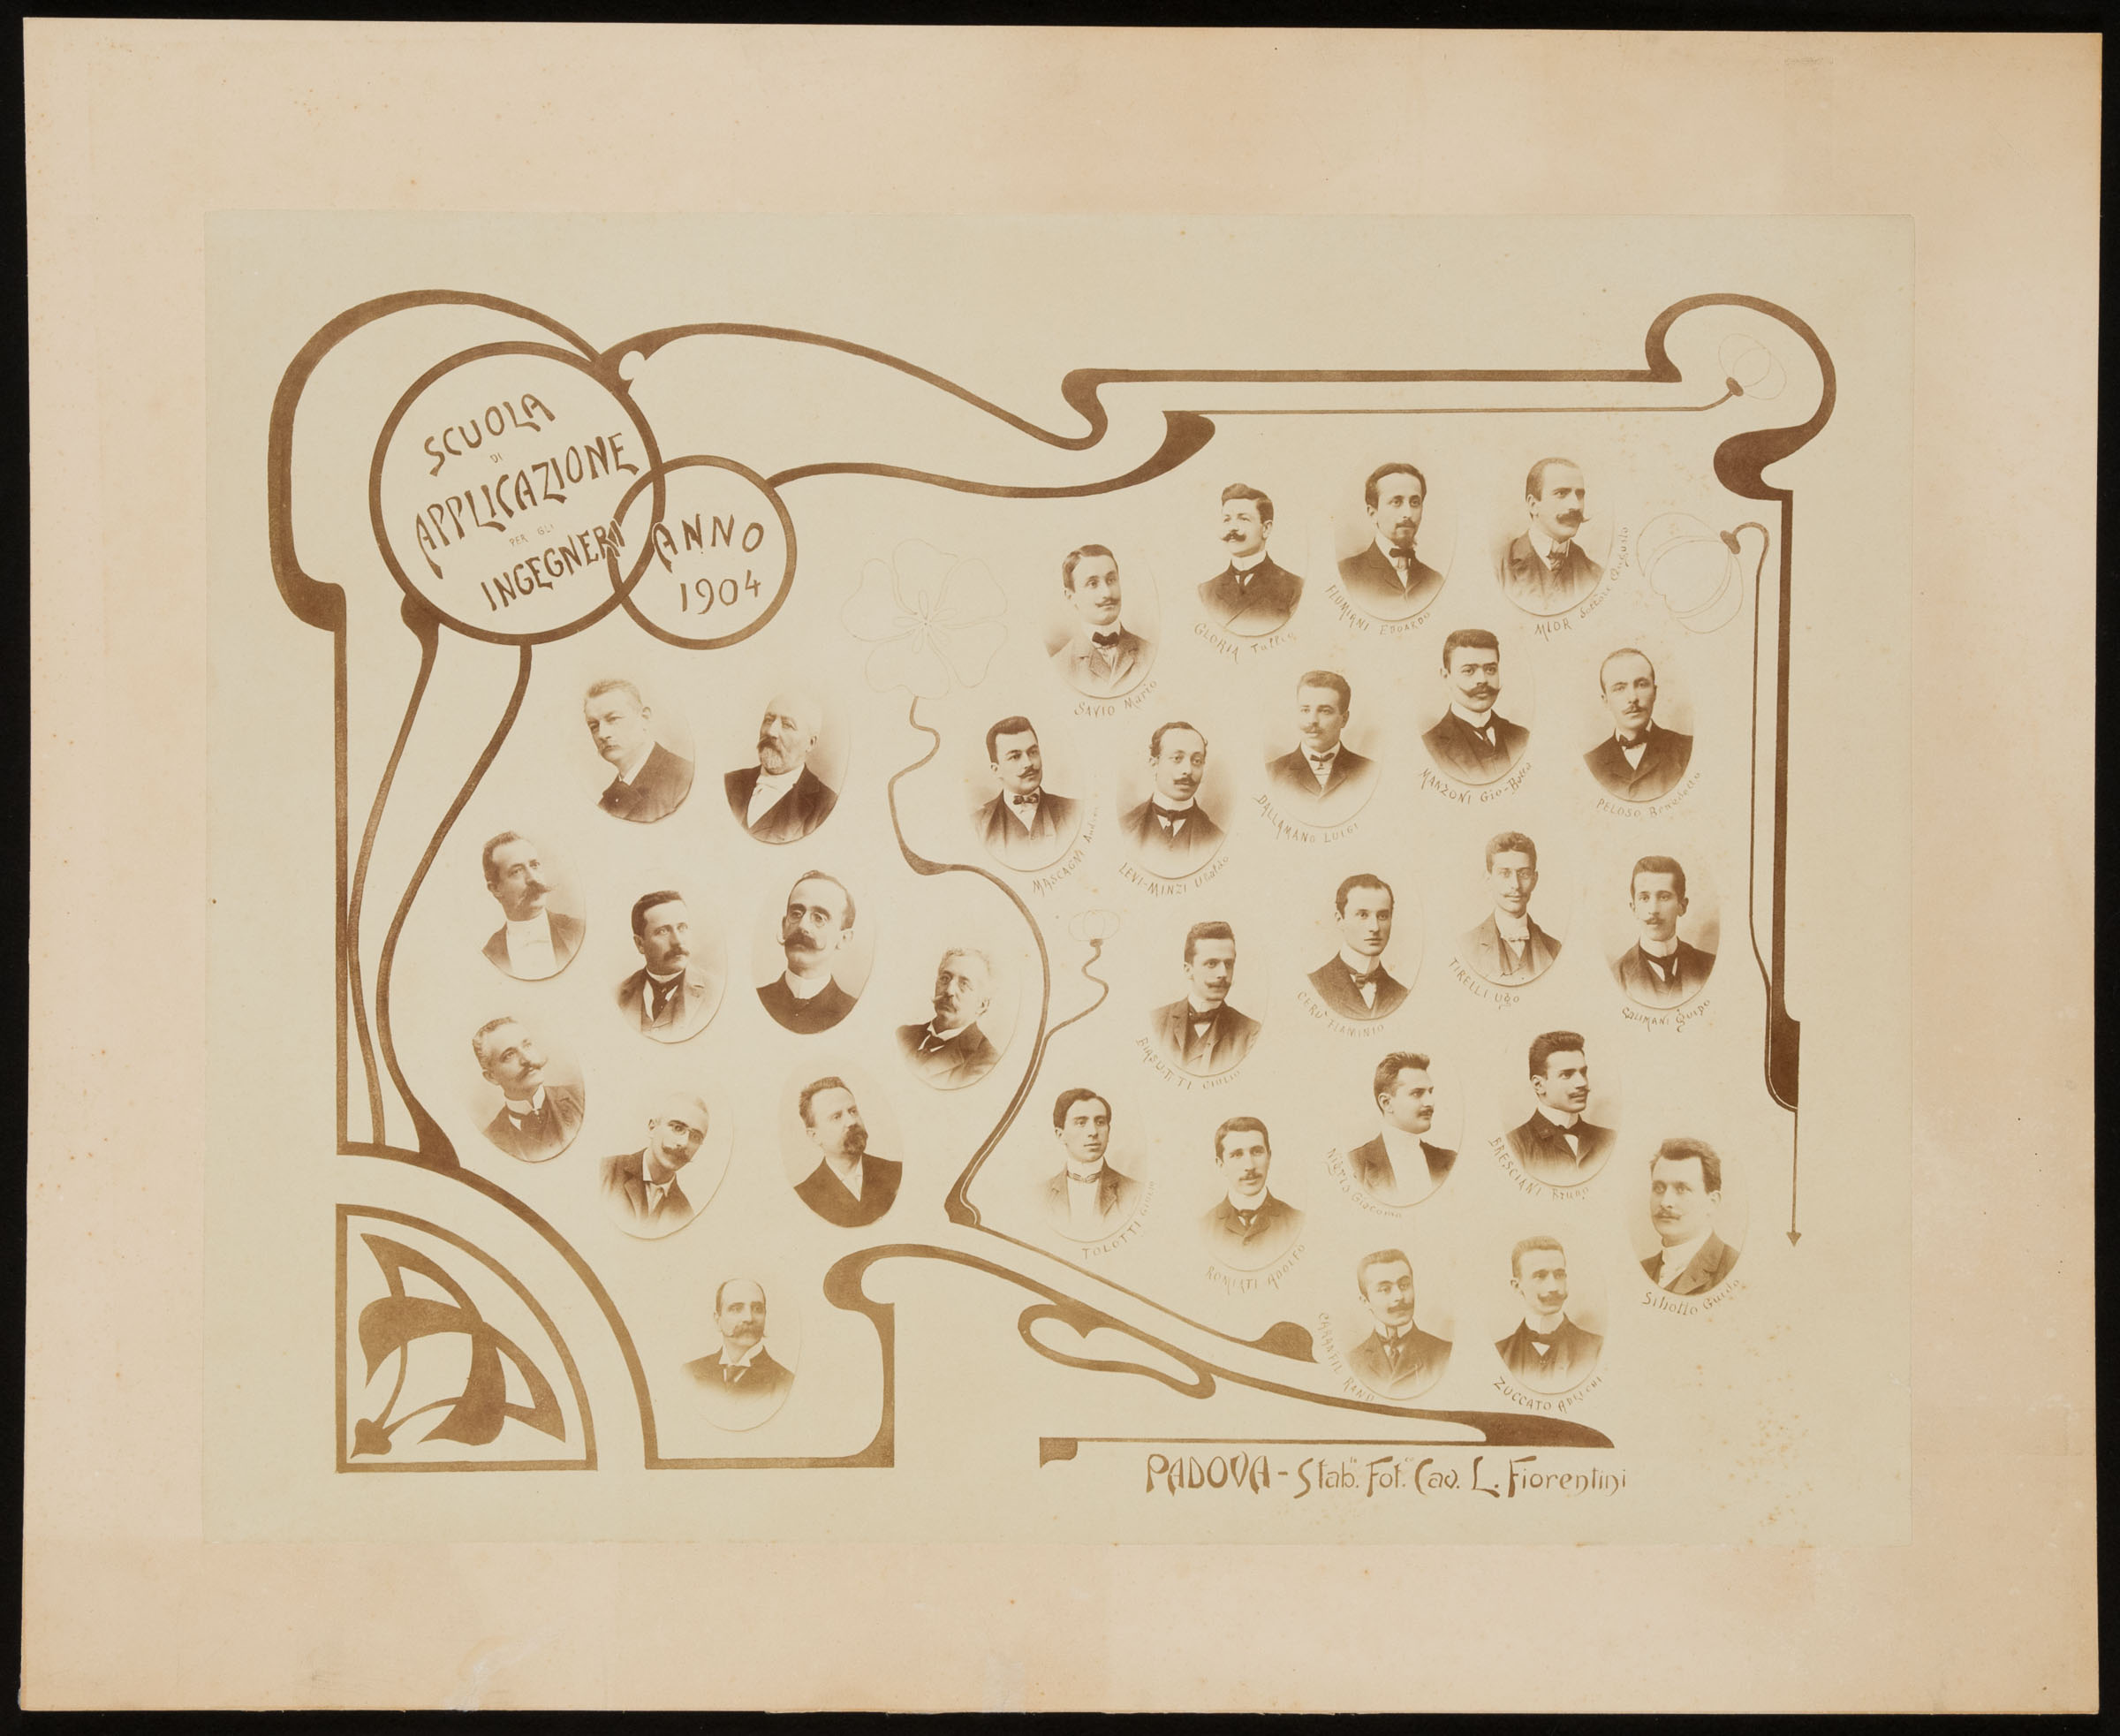 SCUOLA
DI
APPLICAZIONE
PER GLI
INGEGNERI
ANNO
1904
SAVIO Mario
GLORIA Tullio
FLUMIANI EDOARDO
MIOR Augusto
MASCAGNI
LEVI-MINZI Ubaldo
DALLAMANO LUIGI
MANZONI Gio-Batta
PELOSO Benedetto
BIASUTTI GIULIO
CERU' FLAMINIO
TIRELLI Ugo
SOLIMANI GUIDO
TOLOTTI
ROMIATI ADOLFO
Giacomo
BRESCIANI Bruno
Siliotto Guido
ZUCCATO ADELCHI
PADOVA - Stab. Fot. Cav. L. Fiorentini